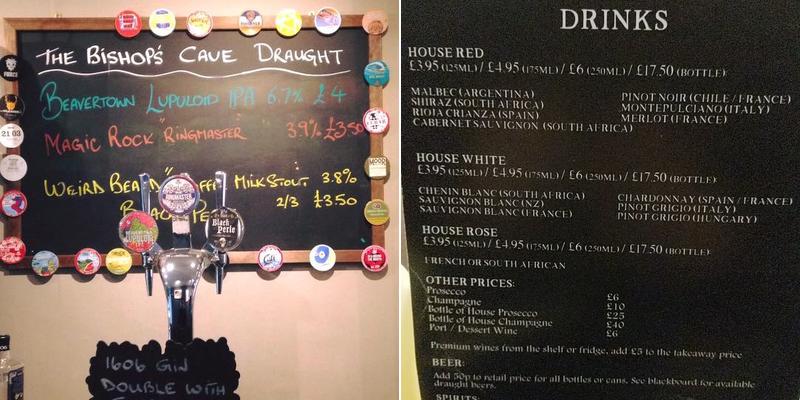 THE BISHOP'S CAVE DRAUGHT
BEAVERTOWN LUPULOID IPA 6.7% £4
MAGIC ROCK "RINGMASTER" 3.9% £3.50
WEIRD BEARD MILK STOUT 3.8%
2/3 £3.50
RINGMASTER
LUPULOID
Black
Perle
21 03
MOOD
1606 GIN
DOUBLE WITH
DRINKS
HOUSE RED
£3.95 (125ML) / £4.95 (175ML) / £6 (250ML) / £17.50 (BOTTLE)
MALBEC (ARGENTINA)
SHIRAZ (SOUTH AFRICA)
RIOJA CRIANZA (SPAIN)
CABERNET SAUVIGNON (SOUTH AFRICA)
PINOT NOIR (CHILE / FRANCE)
MONTEPULCIANO (ITALY)
MERLOT (FRANCE)
HOUSE WHITE
£3.95 (125ML) / £4.95 (175ML) / £6 (250ML) / £17.50 (BOTTLE)
CHENIN BLANC (SOUTH AFRICA)
SAUVIGNON BLANC (NZ)
SAUVIGNON BLANC (FRANCE)
CHARDONNAY (SPAIN / FRANCE)
PINOT GRIGIO (ITALY)
PINOT GRIGIO (HUNGARY)
HOUSE ROSE
£3.95 (125ML) / £4.95 (175ML) / £6 (250ML) / £17.50 (BOTTLE)
FRENCH OR SOUTH AFRICAN
OTHER PRICES:
Prosecco £6
Champagne £10
Bottle of House Prosecco £25
Bottle of House Champagne £40
Port / Dessert Wine £6
Premium wines from the shelf or fridge, add £5 to the takeaway price
BEER:
Add 50p to retail price for all bottles or cans. See blackboard for available
draught beers.
SPIRITS: